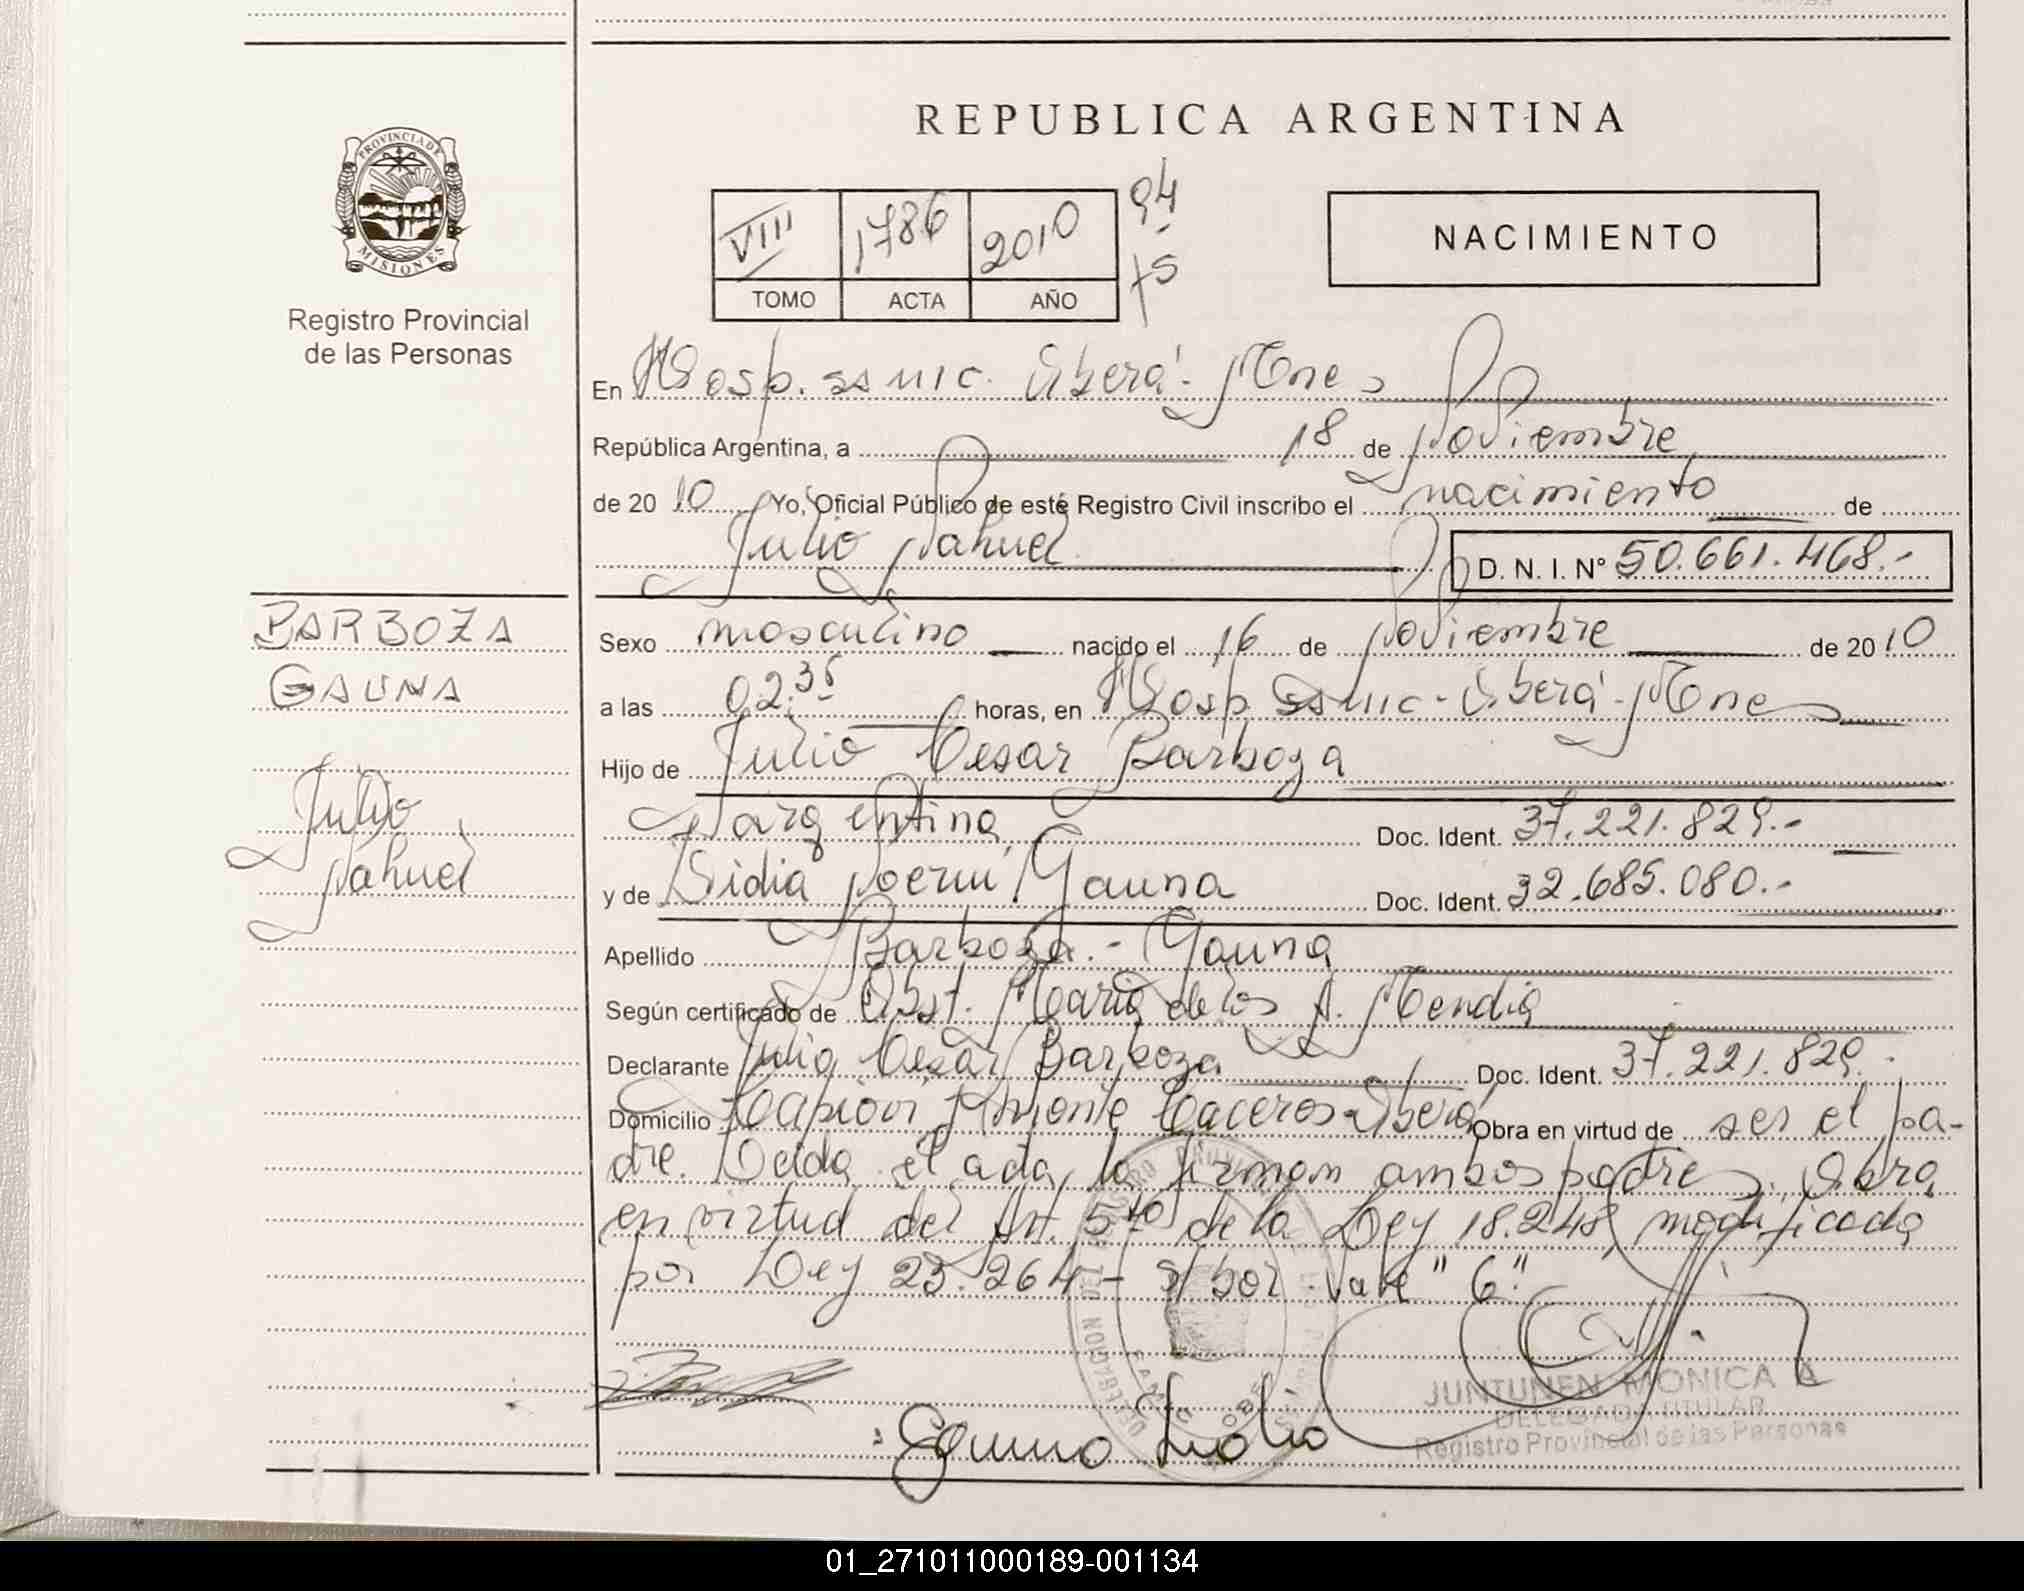 REPUBLICA ARGENTINA
PROVINCIA DE
MISIONES
Registro Provincial
de las Personas
VIII 1786 2010
TOMO ACTA AÑO
94
75
NACIMIENTO
En Hosp. ssmic. Oberá - Mnes
República Argentina, a 18 de Noviembre
de 20 10 Yo, Oficial Público de esté Registro Civil inscribo el nacimiento de
Julio Nahuel D. N. I. Nº 50.661.468.-
BARBOZA
GAUNA
Julio
Nahuel
Sexo masculino nacido el 16 de Noviembre de 20 10
a las 02.35 horas, en Hosp. Ssmic - Oberá - Mnes
Hijo de Julio Cesar Barboza
argentina Doc. Ident. 37.221.829.-
y de Lidia Noemi Gauna Doc. Ident. 32.685.080.-
Apellido Barboza.- Gauna
Según certificado de Obst. Maria de los A. Mendia
Declarante Julio Cesar Barboza Doc. Ident. 37.221.829.-
Domicilio Antonio Caceres - Oberá Obra en virtud de ser el pa-
dre. Leida el acta, la firman ambos padres. Obra
en virtud del Art. 5to de la Ley 18.248, modificada
por Ley 23.264 - s/bor. vale "6".
Gauna Lidia
JUNTUNEN MONICA A
DELEGADA TITULAR
Registro Provincial de las Personas
01_271011000189-001134